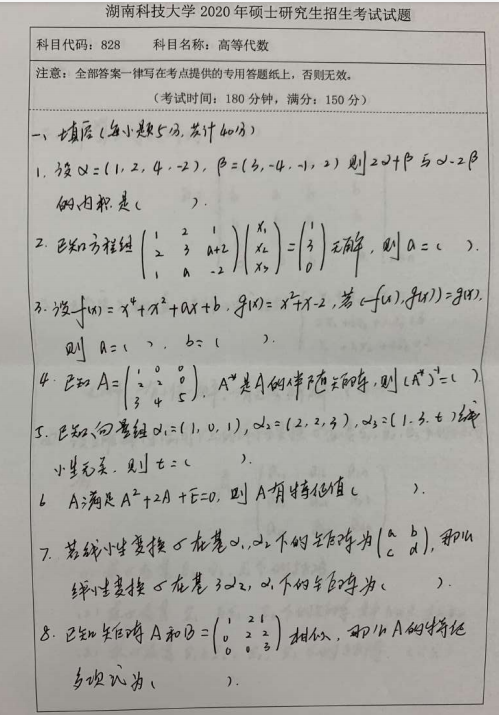 湖南科技大学 2020 年硕士研究生招生考试试题
科目代码：828 科目名称：高等代数
注意：全部答案一律写在考点提供的专用答题纸上，否则无效。
（考试时间：180 分钟，满分：150 分）
一、填空（每小题5分，共计40分）
1. 设 α=(1, 2, 4, -2), β=(3, -4, -1, 2) 则 2α+β 与 α-2β
的内积是（ ）.
2. 已知方程组 (1 2 1; 2 3 a+2; 1 a -2)(x₁; x₂; x₃)=(1; 3; 0) 无解，则 a=（ ）.
3. 设 f(x)=x⁴+x²+ax+b, g(x)=x²+x-2, 若 (f(x), g(x))=g(x),
则 a=（ ）, b=（ ）.
4. 已知 A=(1 0 0; 2 2 0; 3 4 5), A*是A的伴随矩阵，则 (A*)⁻¹=（ ）.
5. 已知向量组 α₁=(1, 0, 1), α₂=(2, 2, 3), α₃=(1, 3, t) 线
性无关，则 t=（ ）.
6 A满足 A²+2A+E=0, 则 A有特征值（ ）.
7. 若线性变换 σ 在基 α₁, α₂ 下的矩阵为 (a b; c d), 那么
线性变换 σ 在基 3α₂, α₁ 下的矩阵为（ ）.
8. 已知矩阵 A 和 B=(1 2 1; 0 2 2; 0 0 3) 相似，那么A的特征
多项式为（ ）.